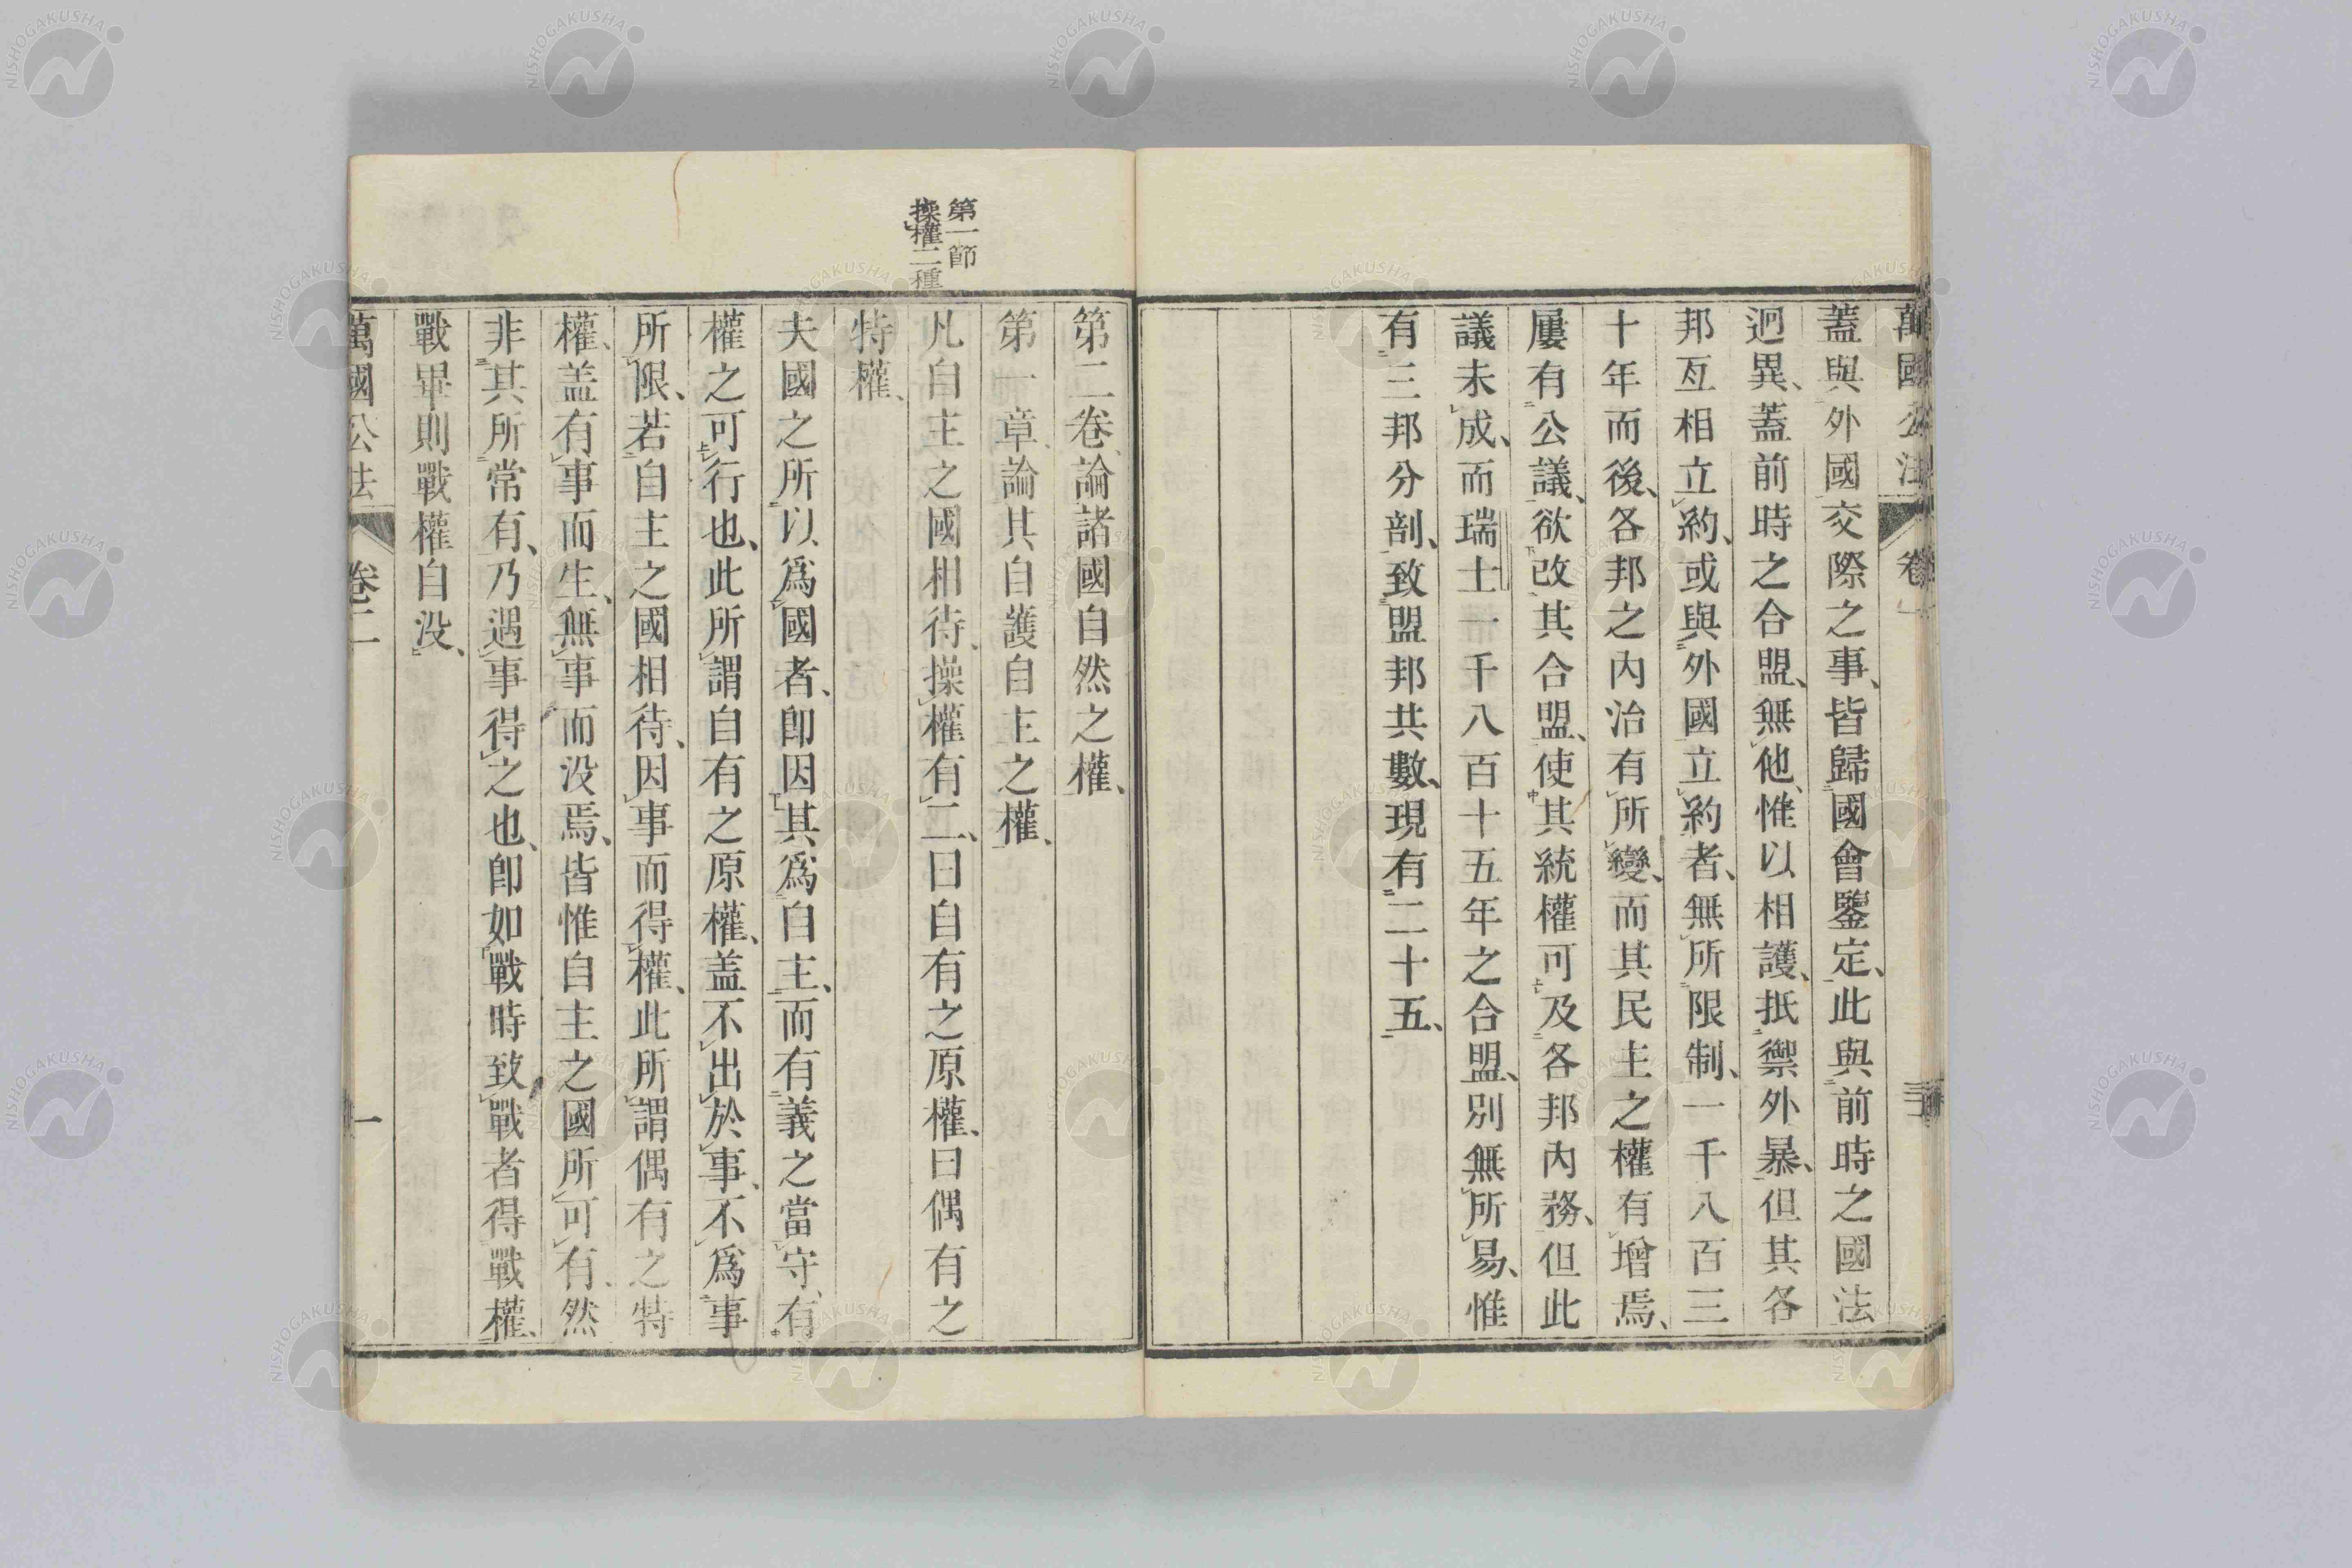 萬國公法 卷一
蓋與外國交際之事、皆歸國會鑒定、此與前時之國法
迥異、蓋前時之合盟、無他、惟以相護、抵禦外暴、但其各
邦互相立約、或與外國立約者、無所限制、一千八百三
十年而後、各邦之內治有所變、而其民主之權有增焉、
屢有公議、欲改其合盟、使其統權可及各邦內務、但此
議未成、而瑞士一千八百十五年之合盟、別無所易、惟
有三邦分剖、致盟邦共數、現有二十五、
第一節
操權二種
第二卷論諸國自然之權、
第一章論其自護自主之權、
凡自主之國相待、操權有二、曰自有之原權、曰偶有之
特權、
夫國之所以爲國者、卽因其爲自主、而有義之當守、有
權之可行也、此所謂自有之原權、盖不出於事、不爲事
所限、若自主之國相待、因事而得權、此所謂偶有之特
權、盖有事而生、無事而没焉、皆惟自主之國所可有、然
非其所常有、乃遇事得之也、卽如戰時致戰者得戰權、
戰畢則戰權自没、
萬國公法 卷二 一
NISHOGAKUSHA